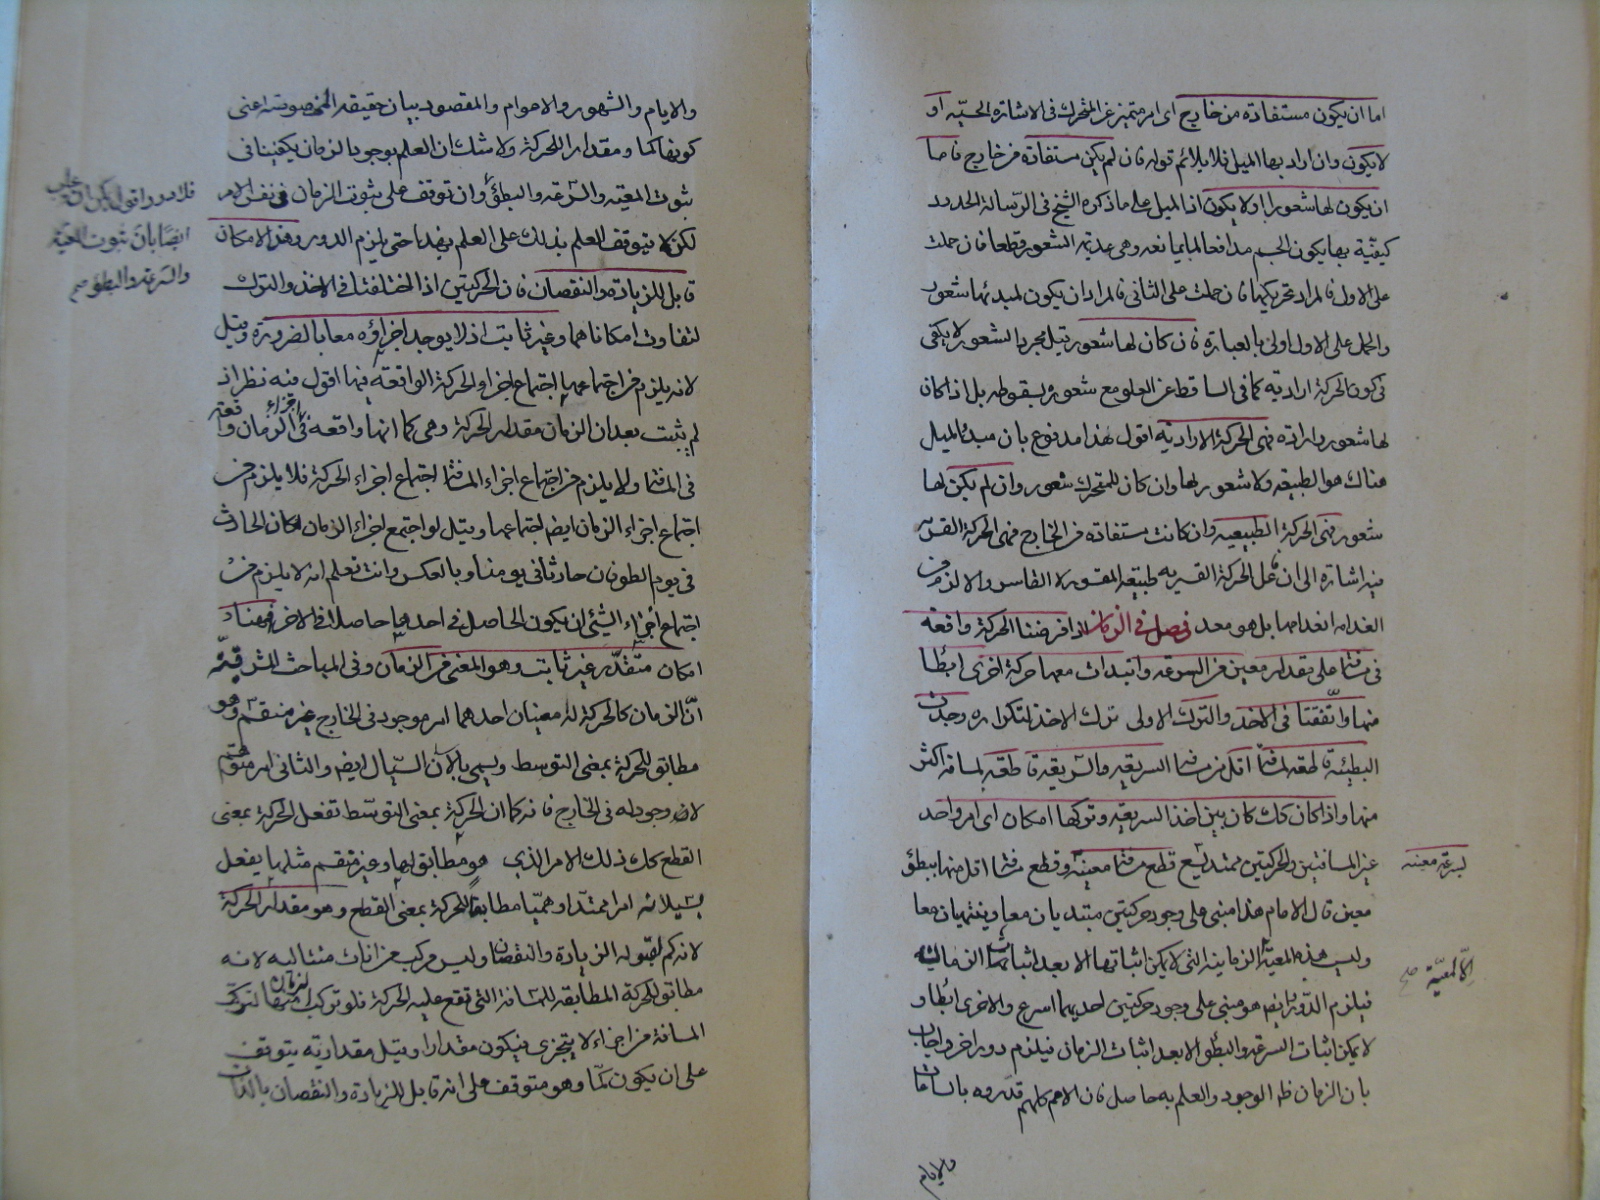 اما ان يكون مستفادة من خارج اى امر متميز عن المتحرك فى الاشارة الحسّيه او
لا يكون وان اراد بها الميل فلا يلائم قوله فان لم يكن مستفادة من خارج فاما
ان يكون لها شعور او لا يكون اذ الميل على ما ذكره الشيخ فى الرّسالة الحدود
كيفيّة بها يكون الجسم مدافعا لما يمانعه وهى عديمة الشعور قطعا فان حملت
على الاول فالمراد تحريكها فان حملت على الثانى فالمراد ان يكون لمبدئها شعور
والحمل على الاول اولى بالعبارة فان كان لها شعور قيل مجرد الشعور لا يكفى
فى كون الحركة ارادية كما فى الساقط عن العلو مع شعوره بسقوطه بل اذا كان
لها شعور وارادة فهى الحركة الارادية اقول هذا مدفوع بان مبدء الميل
هناك هو الطبيعه ولا شعور لها وان كان للمتحرك شعور وان لم يكن لها
شعور فهى الحركة الطبيعيه وان كانت مستفادة من الخارج فهى الحركة القسريه
فيه اشارة الى ان فاعل الحركة القسريه طبيعة المقسور لا القاسر والا لزم من
انعدامه انعدامها بل هو معد فصل فى الزمان اذا فرضنا الحركة واقعه
فى مسافة على مقدار معين من السرعه وابتدات معها حركة اخرى ابطأ
منها واتّفقتا فى الاخذ والترك الاولى ترك الاخذ لتكراره وجدت
البطيئة قاطعه لمسافة اقل من مسافة السريعه والسريعة قاطعه لمسافة اكثر
منها واذا كان كك كان بين اخذ السريعه وتركها امكان اى امر واحد
غير المسافتين والحركتين ممتد يسع قطع مسافة معينة وقطع مسافة اقل منها ببطؤ
بسرعة معينه
معين قال الامام هذا مبنى على وجود حركتين مبتديان معا وينتهيان معا
وليست هذه المعية الا المعيّة صح الزمانية التى لا يمكن اثباتها الا بعد اثبات الزمان
فيلزم الدّور وايضا هو مبنى على وجود حركتين احديهما اسرع والاخرى ابطأ و
لا يمكن اثبات السرعة والبطؤ الا بعد اثبات الزمان فيلزم دور اخر واجاب
بان الزمان ظ الوجود والعلم به حاصل فان الامم كلهم قدروه بالساعات
والايام
والايام والشهور والاعوام والمقصود بيان حقيقته المخصوصة اعنى
كونها كما ومقدارا للحركة ولا شك ان العلم بوجود الزمان يكفينا فى
ثبوت المعيّه والسّرعه والبطؤ وان توقف على ثبوت الزمان فى نفس الامر
لكن لا يتوقف العلم بذلك على العلم بهذا حتى يلزم الدور وهذا الامكان
ايضا بان ثبوت المعيّة
والسرعة والبطؤ صح
قابل للزيادة والنقصان فان الحركتين اذا اختلفتا فى الاخذ والترك
لتفاوت امكاناهما وغير ثابت اذ لا يوجد اجزاؤه معا بالضرورة وقيل
لانه يلزم من اجتماعها اجتماع اجزاء الحركة الواقعة فيها اقول فيه نظر اذ
لم يثبت بعد ان الزمان مقدار الحركة وهى كما انها واقعة فى اجزاء الزمان واقعة
فى المسافة ولا يلزم من اجتماع اجزاء المسافة اجتماع اجزاء الحركة فلا يلزم من
اجتماع اجزاء الزمان ايضا اجتماعها وقيل لو اجتمع اجزاء الزمان لكان الحادث
فى يوم الطوفان حادثا فى يومنا وبالعكس وانت تعلم انه لا يلزم من
اجتماع اجزاء الشئ ان يكون الحاصل فى احدهما حاصلا فى الاخر فهناك
امكان متقدّر غير ثابت وهو المعنى من الزمان وفى المباحث المشرقيّة
انّ الزمان كالحركة له معنيان احدهما امر موجود فى الخارج غير منقسم وهو
مطابق للحركة بمعنى التوسط ويسمى بالآن السّيال ايضا والثانى امر متوهّم
لا وجود له فى الخارج فانه كما ان الحركة بمعنى التوسّط تفعل الحركة بمعنى
القطع كك ذلك الامر الذى هو مطابق لها وغير منقسم مثلها يفعل
بسيلانه امرا ممتدّا وهميّا مطابقا للحركة بمعنى القطع وهو مقدار الحركة
لانه كم لقبوله الزيادة والنقصان وليس مركب من انات متتاليه لانه
مطابق للحركة المطابقه للمسافة التى تقع عليه الحركة فلو تركب الزمان منها لتركب
المسافة من اجزاء لا يتجزى فيكون مقدارا وقيل مقداريته يتوقف
على ان يكون كمّا وهو متوقف على انه قابل للزيادة والنقصان بالذات